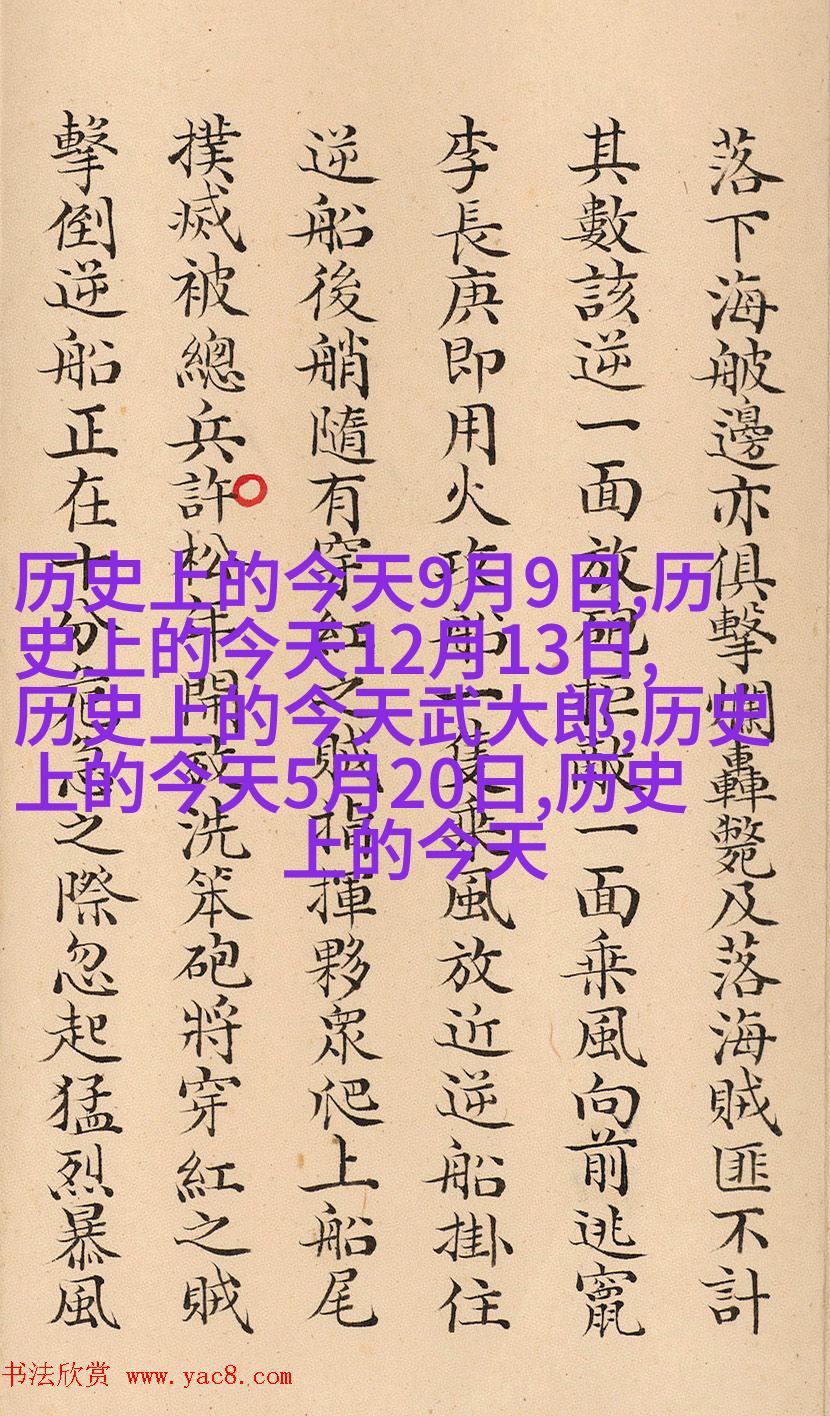 落下海舨邊亦俱擊爛轟斃及落海賊匪不計
其數該逆一面放砲拒敵一面乘風向前逃竄
李長庚即用火攻船一隻乘風放近逆船掛住
逆船後艄隨有穿紅之賊指揮夥眾爬上船尾
撲滅被總兵許松年開放洗笨砲將穿紅之賊
擊倒逆船正在十分危急之際忽起猛烈暴風
历史上的今天9月9日,历
史上的今天12月13日,
历史上的今天武大郎,历史
上的今天5月20日,历史
上的今天
书法欣赏 www.yac8.com